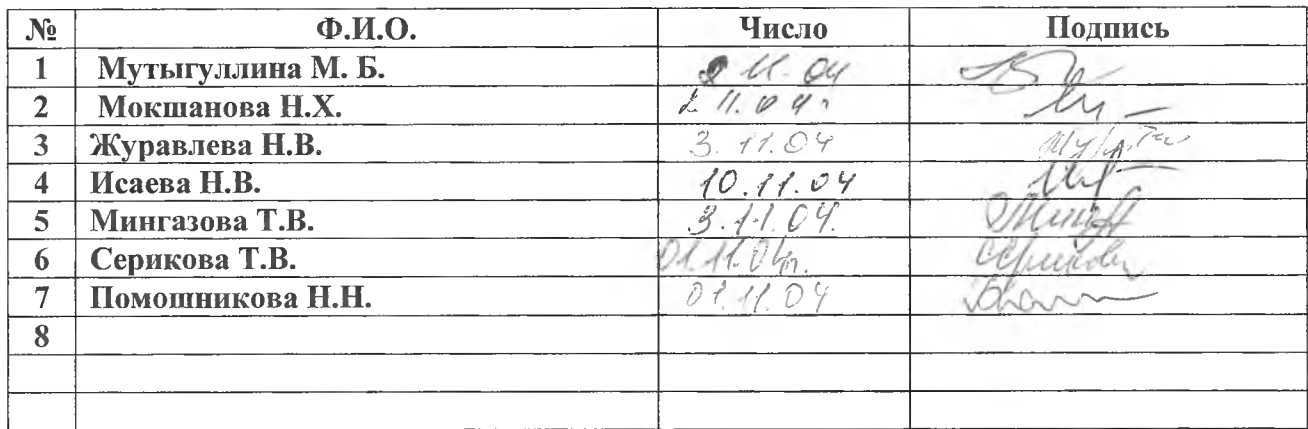 № Ф.И.О. Число Подпись
1 Мутыгуллина М. Б. 11.04
2 Мокшанова Н.Х. 2 11.04г.
3 Журавлева Н.В. 3.11.04
4 Исаева Н.В. 10.11.04
5 Мингазова Т.В. 3.11.04.
6 Серикова Т.В. 01.11.04г. Серикова
7 Помошникова Н.Н. 01.11.04
8